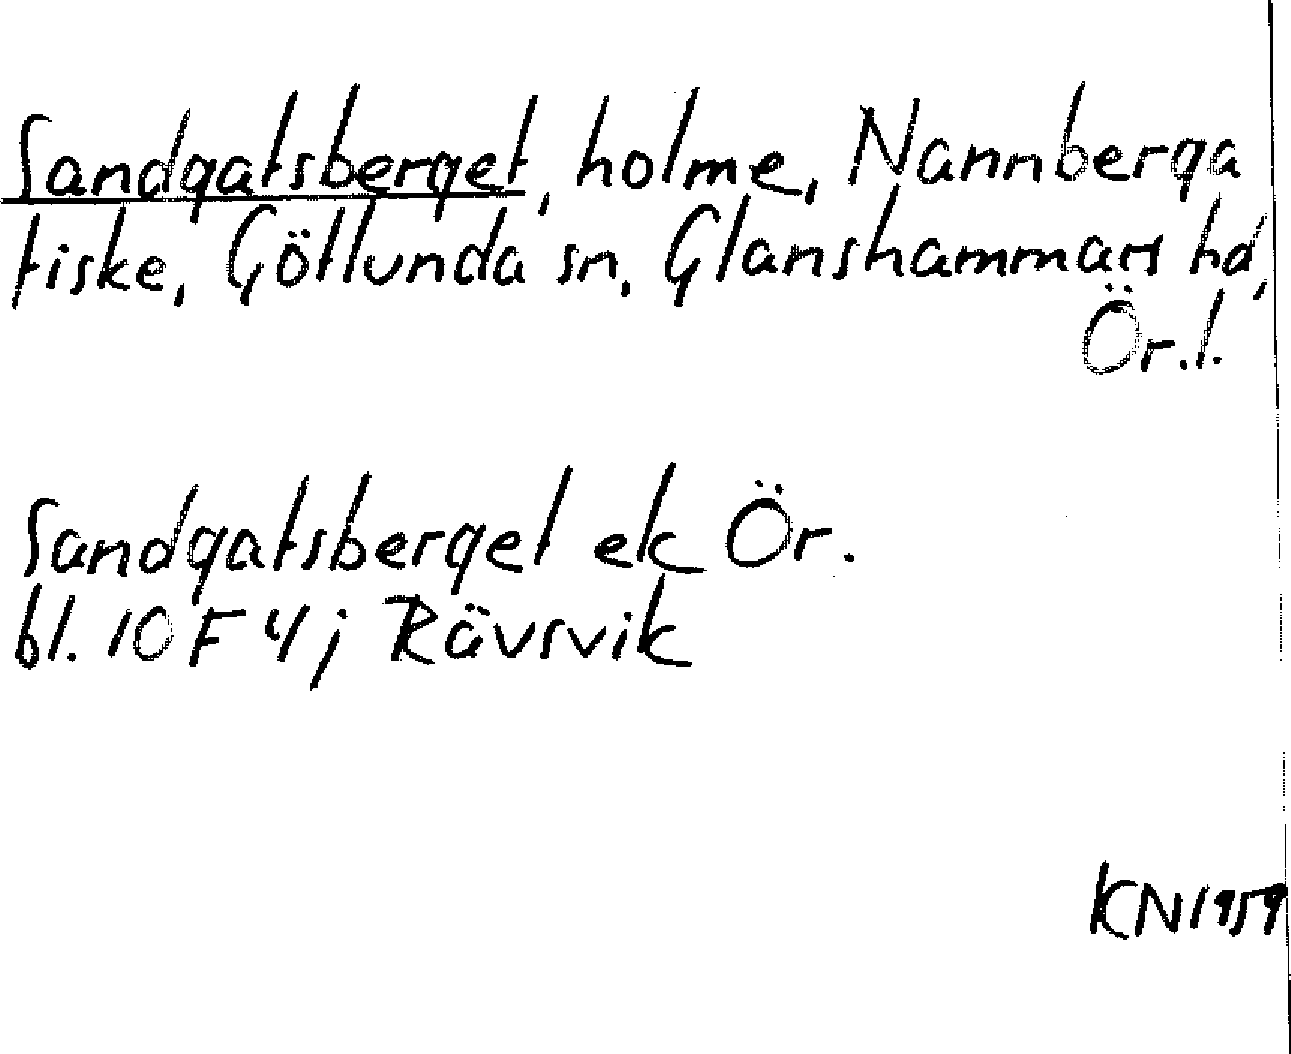 Sandgatsberget, holme, Nannberga
fiske, Götlunda sn, Glanshammars hd,
Ör.l.
Sandgatsberget ek Ör.
bl. 10 F 4 j Rävsvik
KN 1959